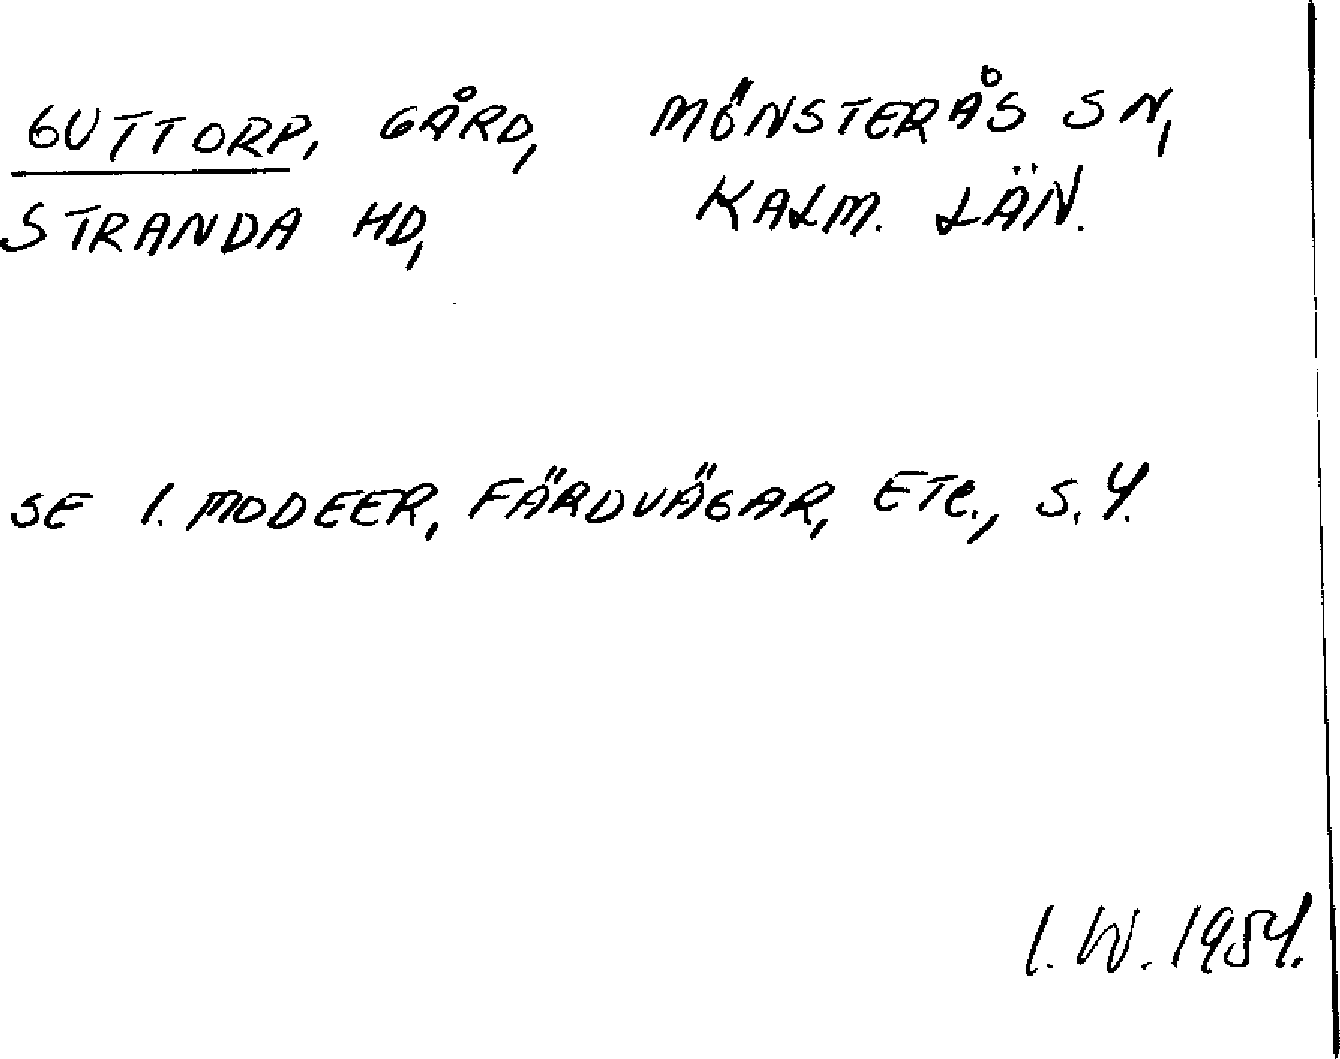 GUTTORP, GÅRD, MÖNSTERÅS SN,
STRANDA HD, KALM. LÄN.
SE I. MODEER, FÄRDVÄGAR, ETC., S. 4.
I. W. 1954.